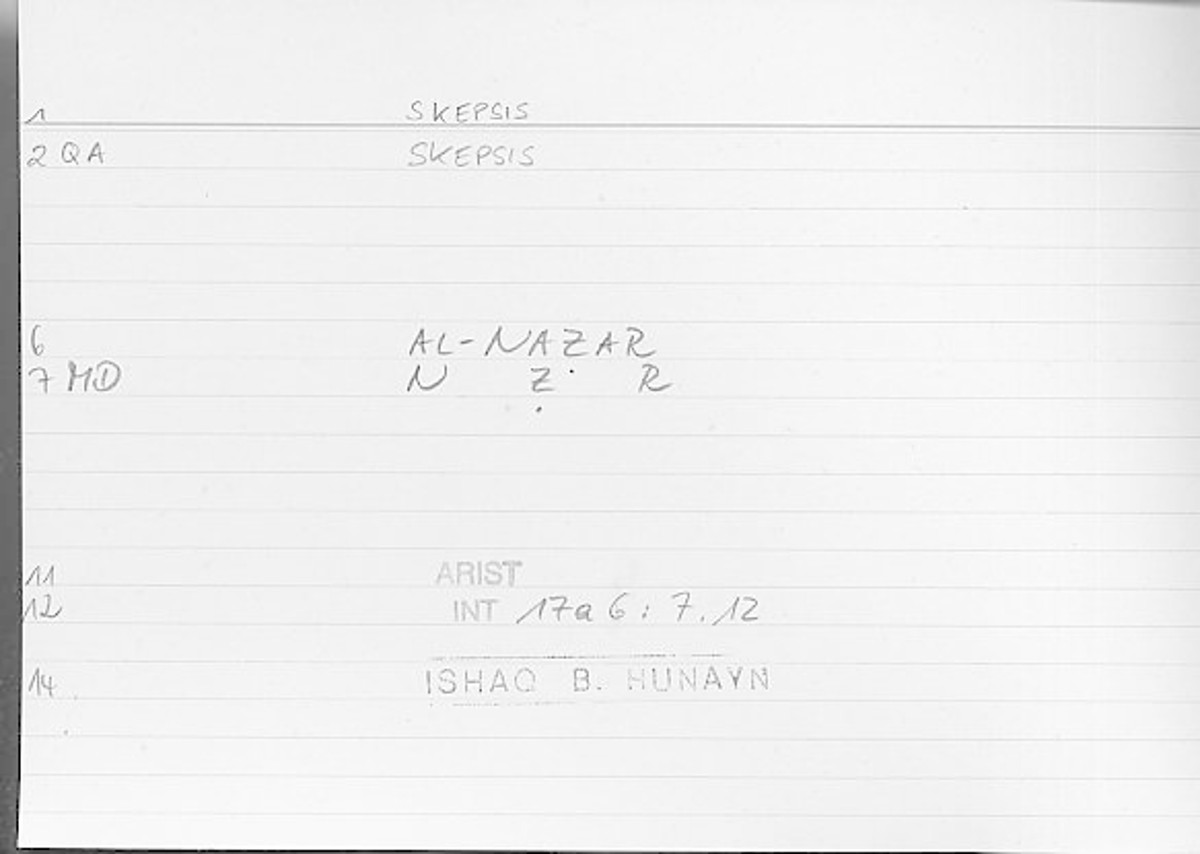 1 SKEPSIS
2 QA SKEPSIS
6 AL-NAẒAR
7 MD N Ẓ R
11 ARIST
12 INT 17a 6 : 7.12
14 ISHAQ B. HUNAYN